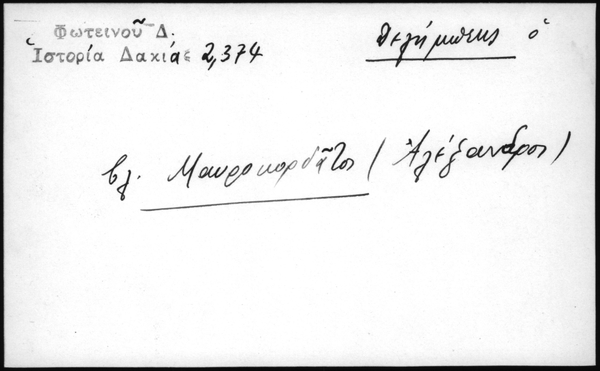 Φωτεινοῦ Δ.
Ἱστορία Δακίας 2,374
Δελήμπεης ὁ
βλ. Μαυροκορδᾶτος (Ἀλέξανδρος)